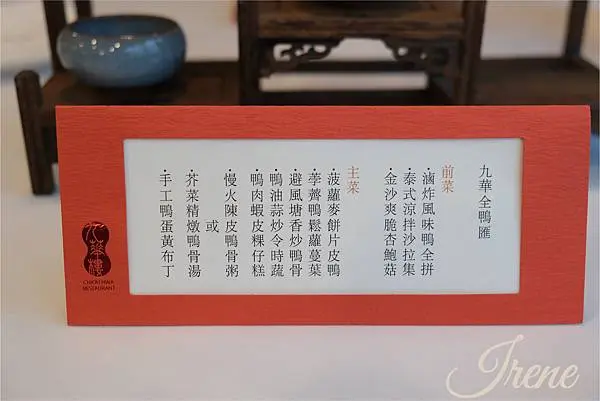 九華全鴨匯
前菜
滷炸風味鴨全拼
·泰式涼拌沙拉集
·金沙爽脆杏鮑菇
主菜
·波蘿麥餅片皮鴨
荸薺鴨鬆蘿蔓葉
避風塘香炒鴨骨
鴨油蒜炒令時蔬
·鴨肉蝦皮粿仔糕
·慢火陳皮鴨骨粥
或
·芥菜精燉鴨骨湯
·手工鴨蛋黃布丁
九華樓
CHIOUHWA
RESTAURANT
Irene